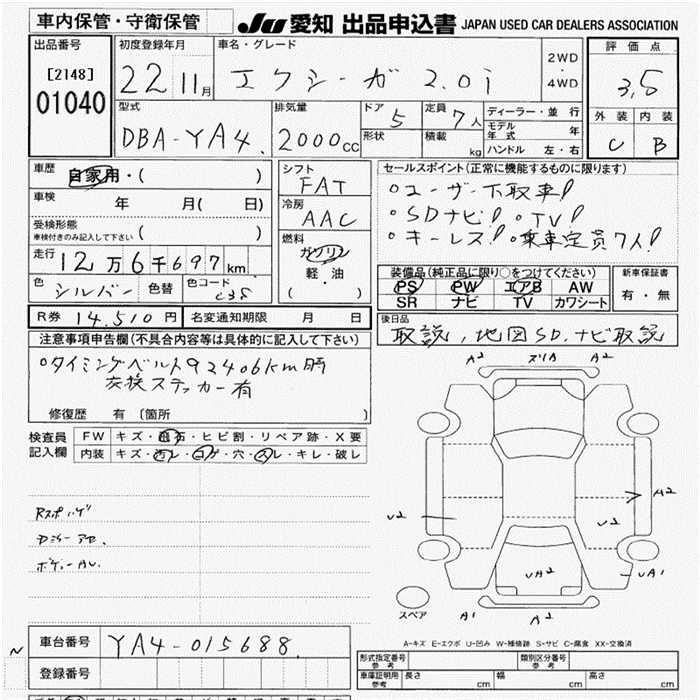 車内保管・守衛保管
JU 愛知 出品申込書 JAPAN USED CAR DEALERS ASSOCIATION
出品番号
[2148]
01040
初度登録年月
22 11月
車名・グレード
エクシーガ 2.0i
2WD
・
4WD
評価点
3.5
外装 内装
C B
型式
DBA-YA4
排気量
2000cc
ドア
5
形状
定員
7人
積載
kg
ディーラー・並行
モデル年式 年
ハンドル 左・右
車歴
自家用・( )
車検
年 月( 日)
受検形態
車検付きのみ記入して下さい ( )
走行
12万6千697km
色
シルバー
色替
色コード
C3S
シフト
FAT
冷房
AAC
燃料
ガソリン
軽・油
( )
セールスポイント(正常に機能するものに限ります)
○ユーザー下取車!
○SDナビ! ○TV!
○キーレス! ○乗車定員7人!
装備品(純正品に限り○をつけてください)
PS PW エアB AW
SR ナビ TV カワシート
新車保証書
有・無
R券 14,510円
名変通知期限 月 日
後日品
取説,地図SD,ナビ取説
注意事項申告欄(不具合内容等は具体的に記入して下さい)
○タイミングベルト92406km時
交換ステッカー有
修復歴 有 〔箇所 〕
検査員
記入欄
FW キズ・飛石・ヒビ割・リペア跡・X要
内装 キズ・汚レ・コゲ・穴・スレ・キレ・破レ
Rスポハゲ
ボディーAU.
A2 スリA A2
U2
A2
U2
UA2
UA1
A1 A2
スペア
A-キズ E-エクボ U-凹み W-補修跡 S-サビ C-腐食 XX-交換済
車台番号 YA4-015688
登録番号
形式指定番号 参考
類別区分番号 参考
車庫証明用 参考 長さ cm 幅 cm 高さ cm